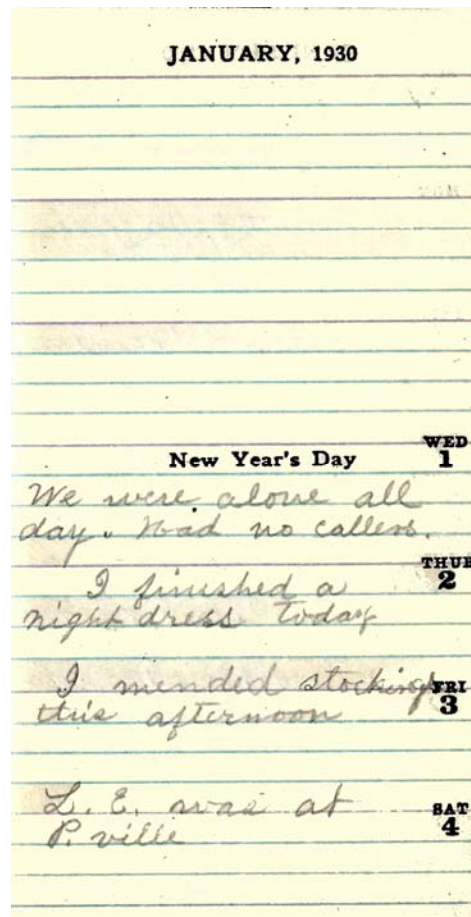 JANUARY, 1930
New Year's Day
WED
1
We were alone all
day. Had no callers.
THUR
2
I finished a
night dress today
FRI
3
I mended stockings
this afternoon
SAT
4
L. E. was at
P. ville